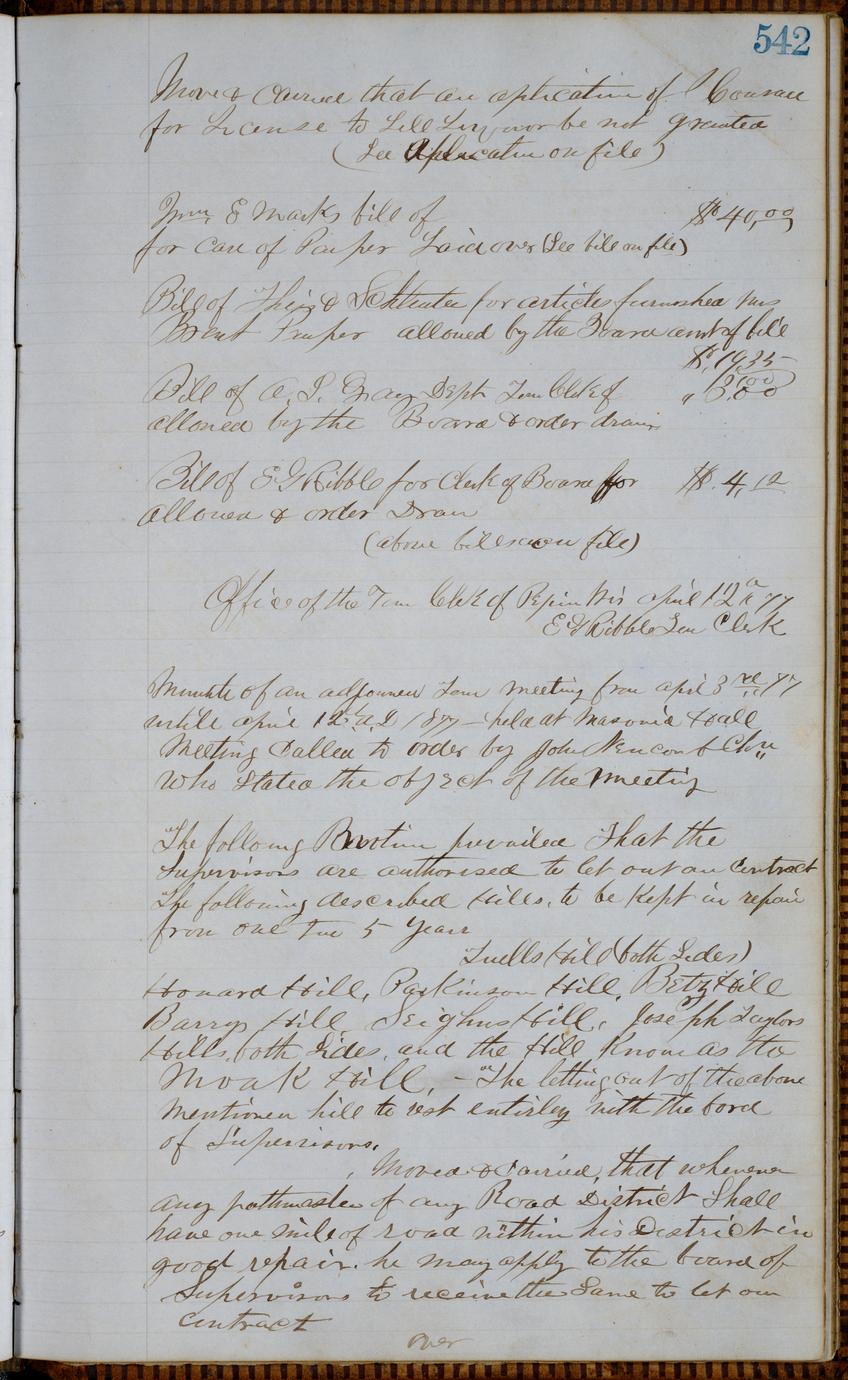 542
Moved & Carried that an aplication of
for License to Sell Liquor be not granted
(See Aplication on file)
Wm. E Marks bill of $40,00
for Care of Pauper Laid over (See bill on file)
Bill of Theis & Schlenter for articles furnished Mrs
Brent Pauper allowed by the Board amt of bill
$ 19,35
Bill of A. I. Gray Dept Town Clerk of " 3 00
allowed by the Board & order drawn
Bill of E G Ribble for Clerk of Board for $ 4,12
allowed & order Drawn
(above bills on file)
Office of the Town Clerk of Pepin Wis april 12th 77
E G Ribble Town Clerk
Minute of an adjourned Town meeting from april 3rd 77
untill april 12th A.D 1877 – held at Masonic Hall
Meeting Called to order by John Chn
who Stated the object of the Meeting
The following Motion prevailed That the
Supervisors are authorised to let out on Contract
The following described Hills, to be Kept in repair
from one Two 5 Years
Tuells Hill (both Sides)
Howard Hill, Parkinson Hill, Betz Hill
Barrys Hill, Seighns Hill, Joseph Taylors
Hills, both Sides, and the Hill Known as the
Moak Hill, – The letting out of the above
mentioned hill to rest entirley with the bord
of Supervisors.
Moved & Carried, that whenever
any pathmaster of any Road District Shall
have one mile of road within his District in
good repair. he may apply to the board of
Supervisors to receive the Same to let on
contract
over